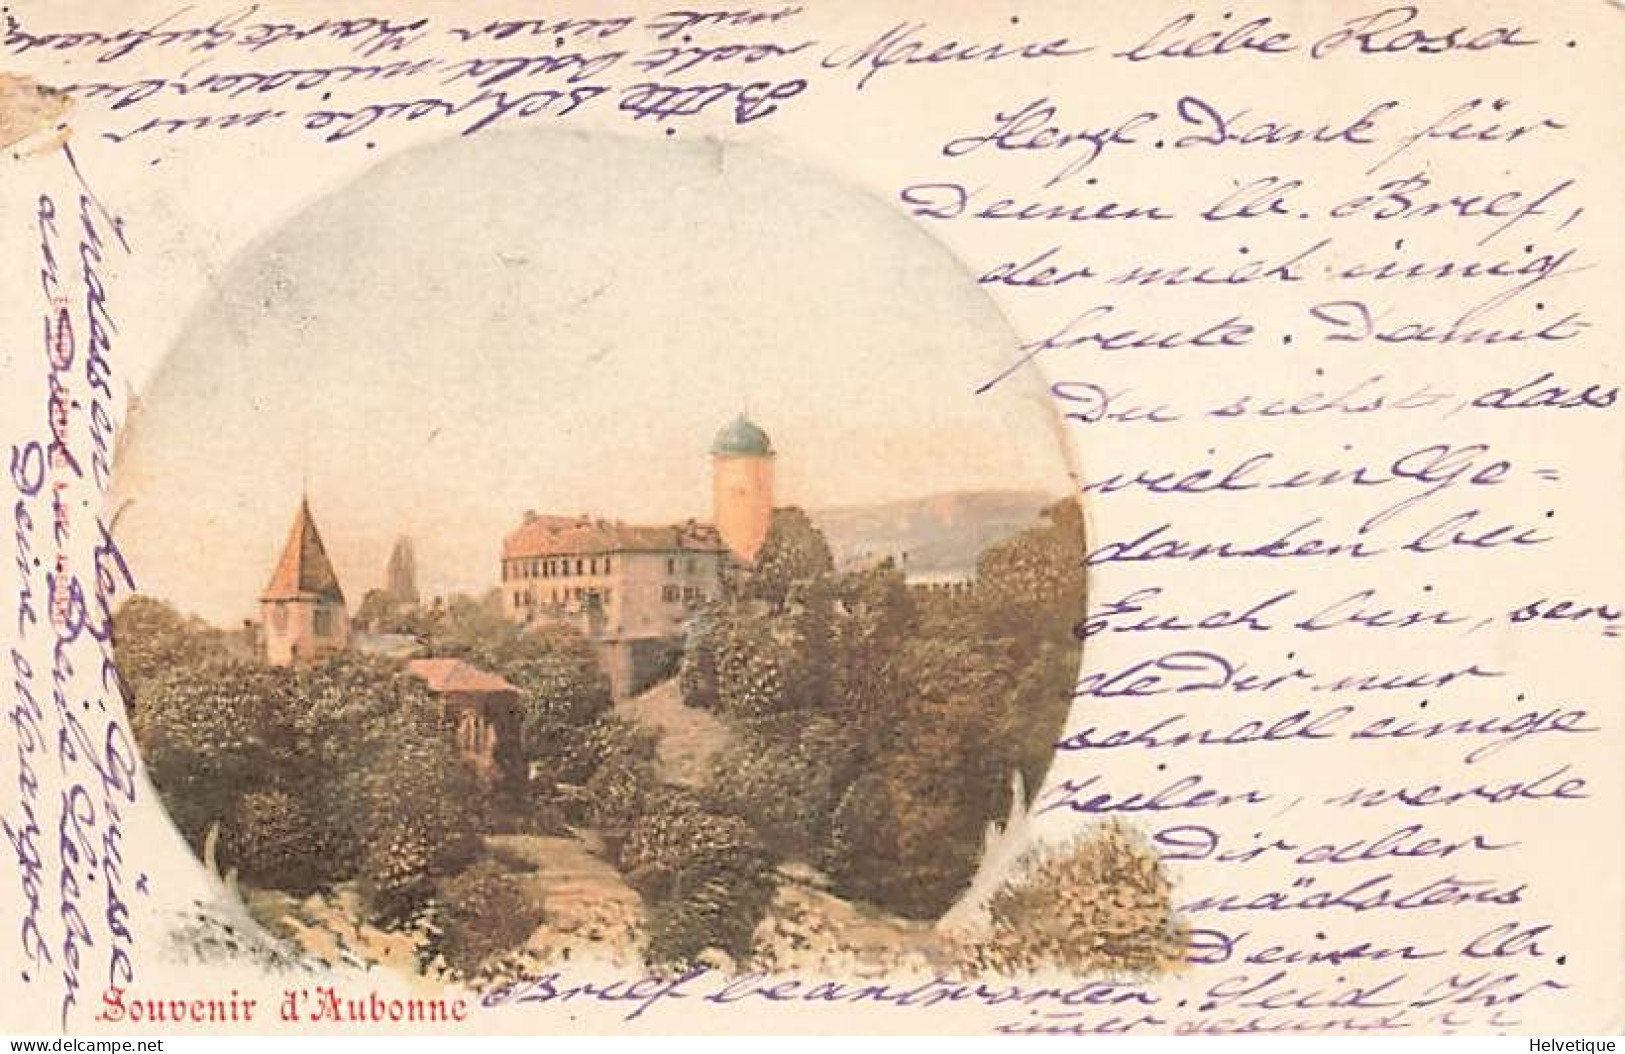 Meine liebe Rosa.
Herzl. Dank für
Deinen lb. Brief,
der mich innig
freute. Damit
Du siehst, dass
viel in Ge=
danken bei
Euch bin, sen=
de Dir nur
schnell einige
Zeilen, werde
Dir aber
nächstens
Deinen lb.
Brief beantworten. Seid Ihr
immer gesund??
Bitte schreibe mir
recht bald wieder, bin
mit einer Karte zufrieden
Indessen herz. Grüsse
an Dich & Deine Lieben
Deine
Souvenir d'Aubonne
delcampe.net
Helvetique